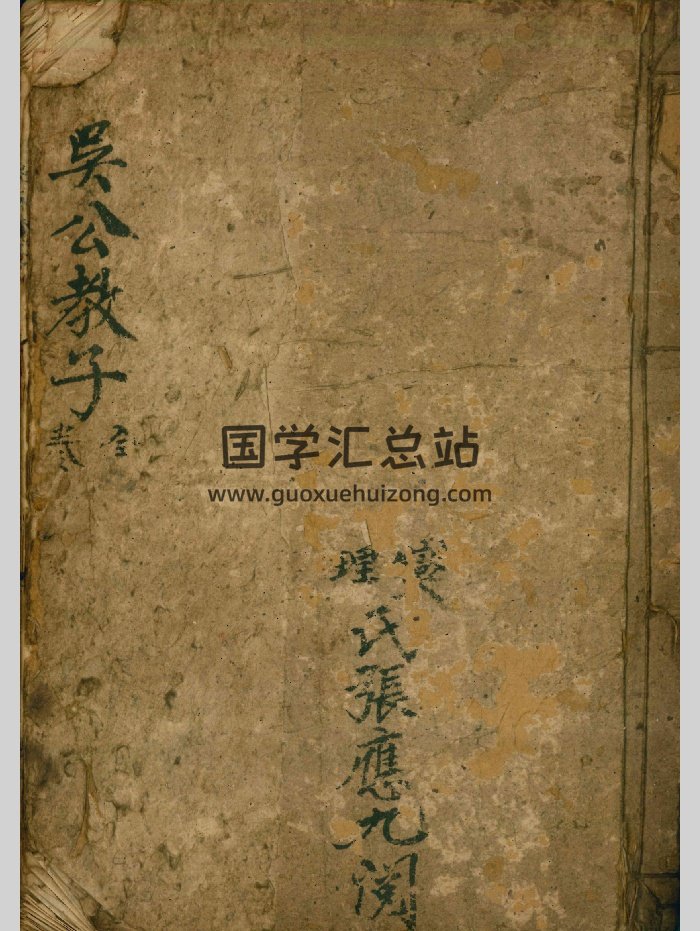 吴公教子
全
卷
理
氏張應九閲
国学汇总站
www.guoxuehuizong.com